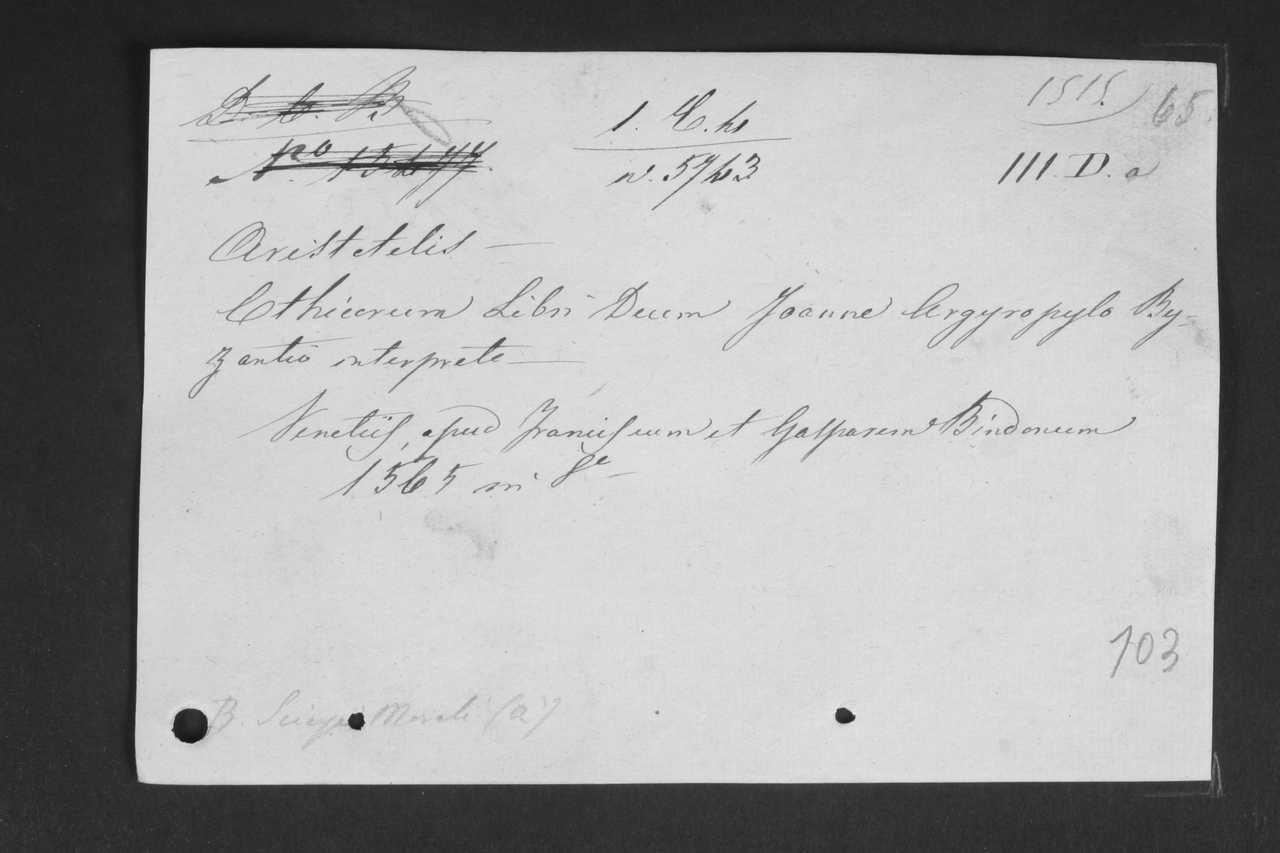 1515. 65.
1. C. h
n. 5743
III. D. a
Aristotelis —
Ethicorum Libri Decem Joanne Argyropylo By-
zantio interprete —
Venetiis, apud Franciscum et Gasparem Bindonum
1565 in 8º —
103
B. Morali (a)